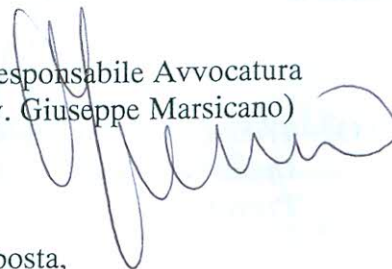 esponsabile Avvocatura
v. Giuseppe Marsicano)
posta,